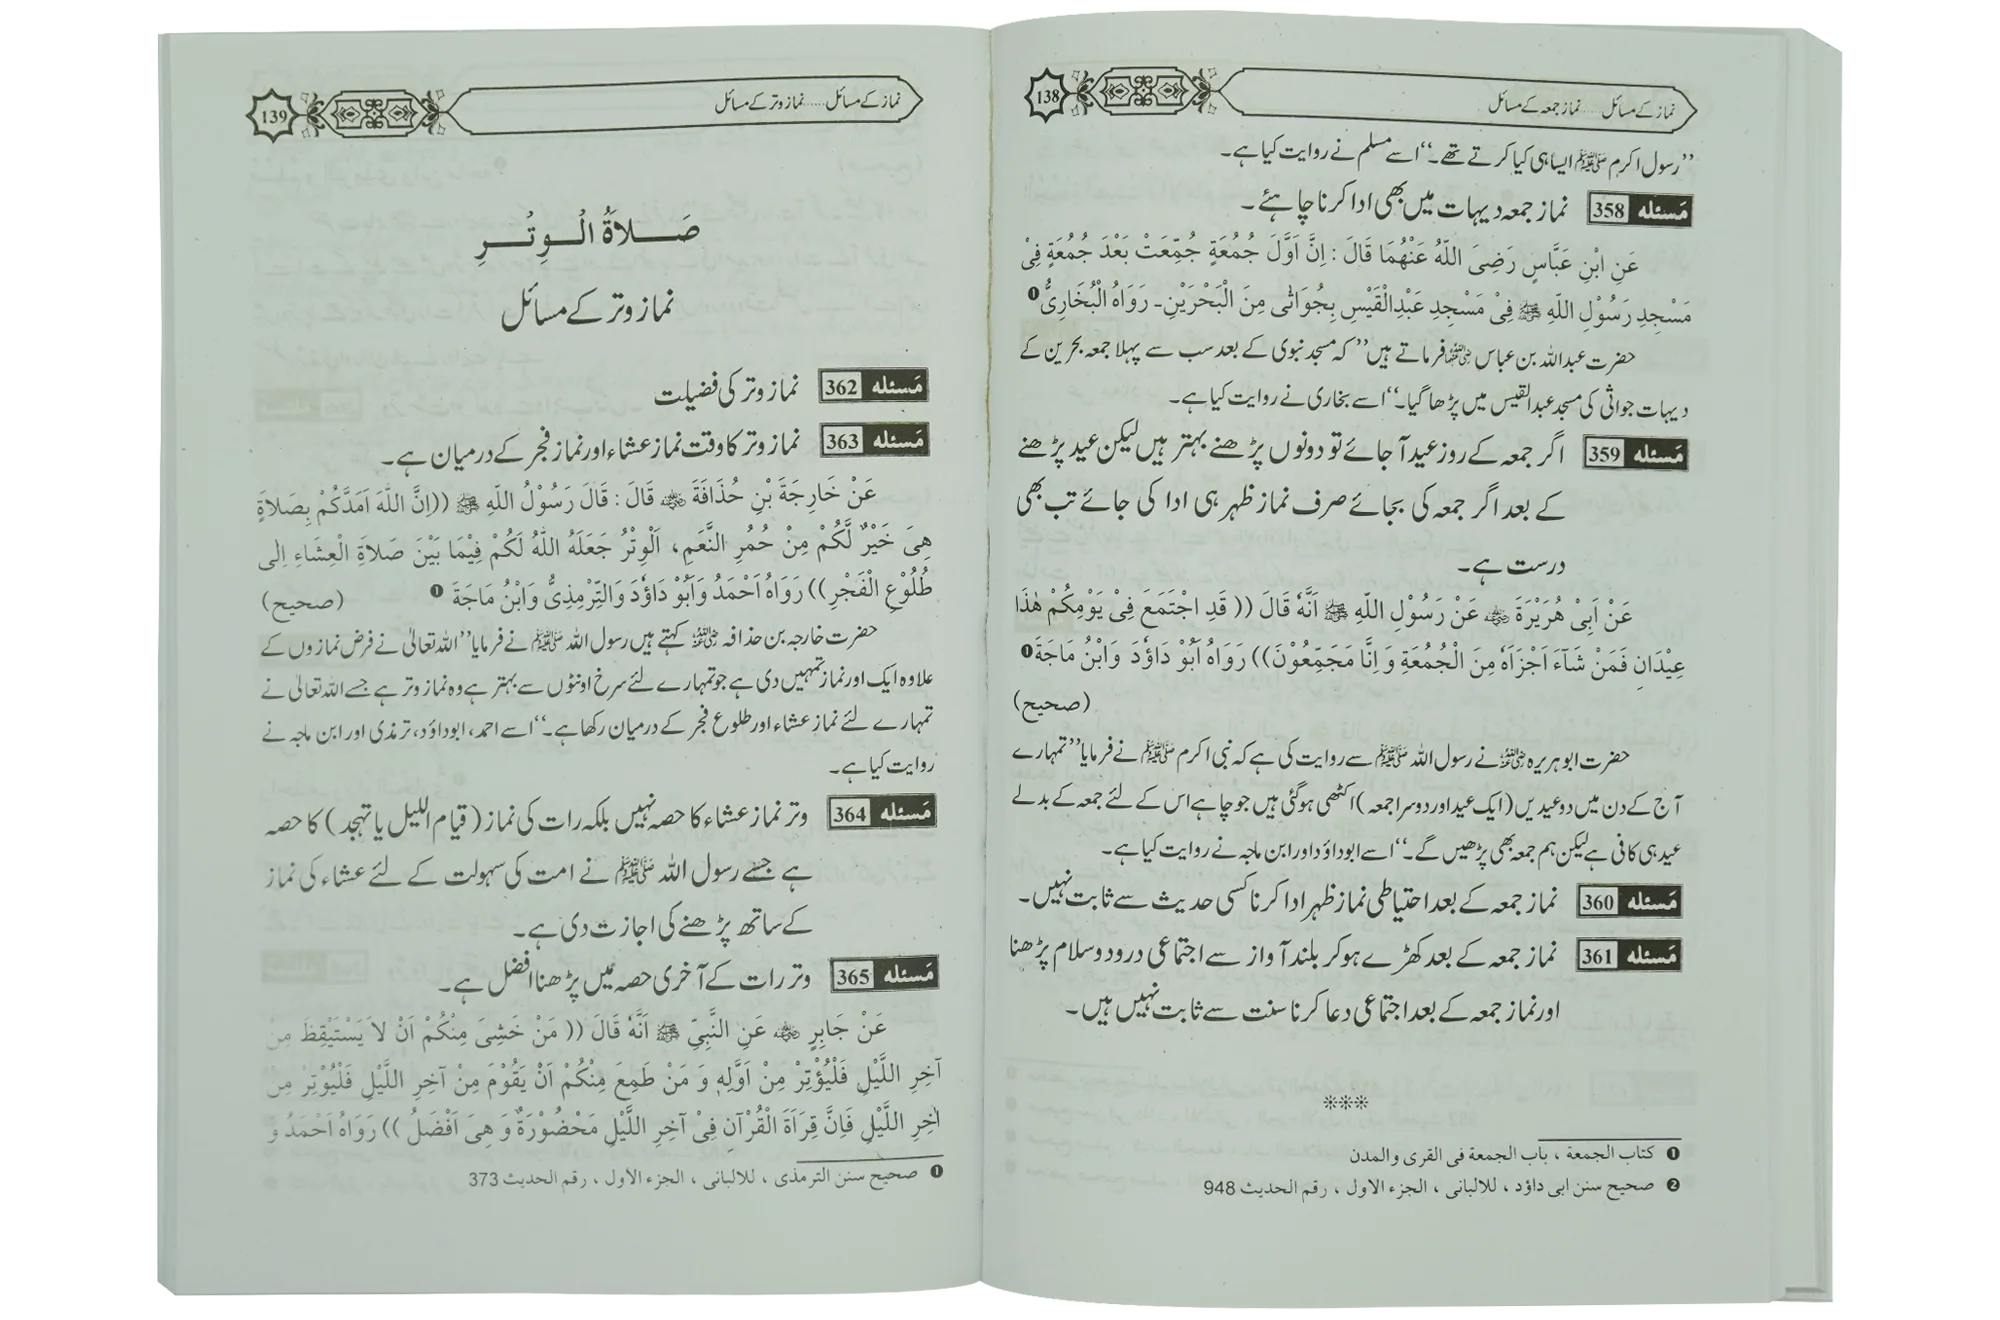 138
نماز کے مسائل ..... نماز جمعہ کے مسائل
’’رسول اکرم ﷺ ایسا ہی کیا کرتے تھے۔‘‘ اسے مسلم نے روایت کیا ہے۔
مَسئله 358 نماز جمعہ دیہات میں بھی ادا کرنا چاہئے۔
عَنِ ابْنِ عَبَّاسٍ رَضِیَ اللّٰهُ عَنْهُمَا قَالَ : اِنَّ اَوَّلَ جُمُعَةٍ جُمِّعَتْ بَعْدَ جُمُعَةٍ فِیْ
مَسْجِدِ رَسُوْلِ اللّٰهِ ﷺ فِیْ مَسْجِدِ عَبْدِالْقَیْسِ بِجُوَاثٰی مِنَ الْبَحْرَیْنِ۔ رَوَاهُ الْبُخَارِیُّ ❶
حضرت عبداللہ بن عباس رضی اللہ عنہما فرماتے ہیں ’’کہ مسجد نبوی کے بعد سب سے پہلا جمعہ بحرین کے
دیہات جواثی کی مسجد عبدالقیس میں پڑھا گیا۔‘‘ اسے بخاری نے روایت کیا ہے۔
مَسئله 359 اگر جمعہ کے روز عید آ جائے تو دونوں پڑھنے بہتر ہیں لیکن عید پڑھنے
کے بعد اگر جمعہ کی بجائے صرف نماز ظہر ہی ادا کی جائے تب بھی
درست ہے۔
عَنْ اَبِیْ هُرَیْرَةَ رضی اللہ عنہ عَنْ رَسُوْلِ اللّٰهِ ﷺ اَنَّهٗ قَالَ (( قَدِ اجْتَمَعَ فِیْ یَوْمِكُمْ هٰذَا
عِیْدَانِ فَمَنْ شَآءَ اَجْزَاَهٗ مِنَ الْجُمُعَةِ وَ اِنَّا مَجَمِّعُوْنَ)) رَوَاهُ اَبُوْ دَاوٗدَ وَابْنُ مَاجَةَ ❶
(صحیح)
حضرت ابو ہریرہ رضی اللہ عنہ نے رسول اللہ ﷺ سے روایت کی ہے کہ نبی اکرم ﷺ نے فرمایا ’’تمہارے
آج کے دن میں دو عیدیں (ایک عید اور دوسرا جمعہ) اکٹھی ہو گئی ہیں جو چاہے اس کے لئے جمعہ کے بدلے
عید ہی کافی ہے لیکن ہم جمعہ بھی پڑھیں گے۔‘‘ اسے ابوداؤد اور ابن ماجہ نے روایت کیا ہے۔
مَسئله 360 نماز جمعہ کے بعد احتیاطی نماز ظہر ادا کرنا کسی حدیث سے ثابت نہیں۔
مَسئله 361 نماز جمعہ کے بعد کھڑے ہو کر بلند آواز سے اجتماعی درود و سلام پڑھنا
اور نماز جمعہ کے بعد اجتماعی دعا کرنا سنت سے ثابت نہیں ہیں۔
❊❊❊
❶ كتاب الجمعة ، باب الجمعة فی القری والمدن
❷ صحیح سنن ابی داؤد ، للالبانی ، الجزء الاول ، رقم الحدیث 948
139
نماز کے مسائل ..... نماز وتر کے مسائل
صَــلاَةُ الْـوِتْـرِ
نماز وتر کے مسائل
مَسئله 362 نماز وتر کی فضیلت
مَسئله 363 نماز وتر کا وقت نماز عشاء اور نماز فجر کے درمیان ہے۔
عَنْ خَارِجَةَ بْنِ حُذَافَةَ رضی اللہ عنہ قَالَ : قَالَ رَسُوْلُ اللّٰهِ ﷺ ((اِنَّ اللّٰهَ اَمَدَّكُمْ بِصَلاَةٍ
هِیَ خَیْرٌ لَّكُمْ مِنْ حُمُرِ النَّعَمِ، اَلْوِتْرُ جَعَلَهُ اللّٰهُ لَكُمْ فِیْمَا بَیْنَ صَلاَةِ الْعِشَاءِ اِلٰی
طُلُوْعِ الْفَجْرِ)) رَوَاهُ اَحْمَدُ وَاَبُوْ دَاوٗدَ وَالتِّرْمِذِیُّ وَابْنُ مَاجَةَ ❶ (صحیح)
حضرت خارجہ بن حذافہ رضی اللہ عنہ کہتے ہیں رسول اللہ ﷺ نے فرمایا ’’اللہ تعالیٰ نے فرض نمازوں کے
علاوہ ایک اور نماز تمہیں دی ہے جو تمہارے لئے سرخ اونٹوں سے بہتر ہے وہ نماز وتر ہے جسے اللہ تعالیٰ نے
تمہارے لئے نماز عشاء اور طلوع فجر کے درمیان رکھا ہے۔‘‘ اسے احمد، ابوداؤد، ترمذی اور ابن ماجہ نے
روایت کیا ہے۔
مَسئله 364 وتر نماز عشاء کا حصہ نہیں بلکہ رات کی نماز (قیام اللیل یا تہجد) کا حصہ
ہے جسے رسول اللہ ﷺ نے امت کی سہولت کے لئے عشاء کی نماز
کے ساتھ پڑھنے کی اجازت دی ہے۔
مَسئله 365 وتر رات کے آخری حصہ میں پڑھنا افضل ہے۔
عَنْ جَابِرٍ رضی اللہ عنہ عَنِ النَّبِیِّ ﷺ اَنَّهٗ قَالَ (( مَنْ خَشِیَ مِنْكُمْ اَنْ لاَ یَسْتَیْقِظَ مِنْ
آخِرِ اللَّیْلِ فَلْیُؤْتِرْ مِنْ اَوَّلِهٖ وَ مَنْ طَمِعَ مِنْكُمْ اَنْ یَقُوْمَ مِنْ آخِرِ اللَّیْلِ فَلْیُوْتِرْ مِنْ
اٰخِرِ اللَّیْلِ فَاِنَّ قِرَاَةَ الْقُرْآنِ فِیْ آخِرِ اللَّیْلِ مَحْضُوْرَةٌ وَ هِیَ اَفْضَلُ )) رَوَاهُ اَحْمَدُ وَ
❶ صحیح سنن الترمذی ، للالبانی ، الجزء الاول ، رقم الحدیث 373